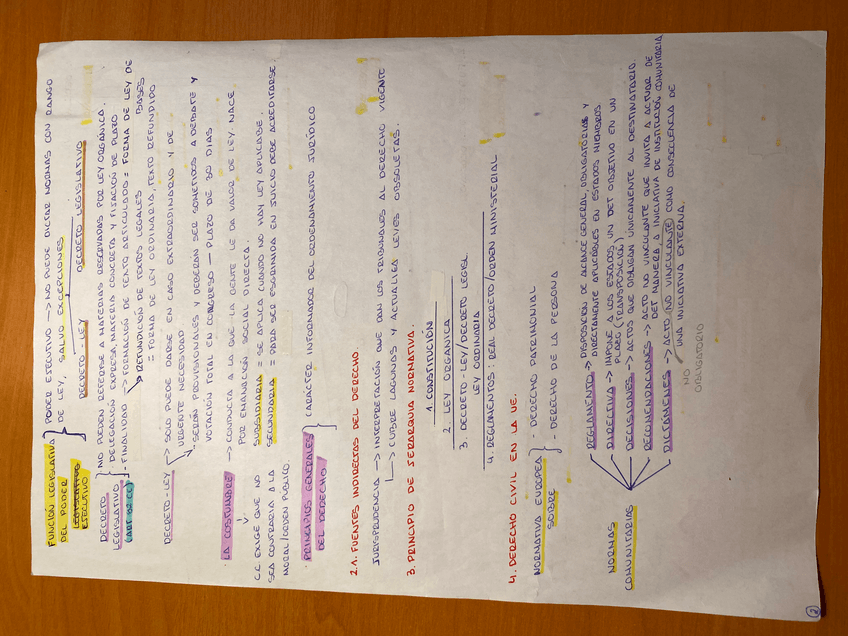 FUNCIÓN LEGISLATIVA DEL PODER EJECUTIVO } PODER EJECUTIVO → NO PUEDE DICTAR NORMAS CON RANGO
DE LEY, SALVO EXCEPCIONES
DECRETO-LEY DECRETO LEGISLATIVO
DECRETO LEGISLATIVO (ART. 82 CE) } NO PUEDEN REFERIRSE A MATERIAS RESERVADAS POR LEY ORGÁNICA.
- DELEGACIÓN EXPRESA, MATERIA CONCRETA Y FIJACIÓN DE PLAZO
- FINALIDAD → FORMACIÓN DE TEXTO ARTICULADO = FORMA DE LEY DE BASES
→ REFUNDICIÓN DE TEXTOS LEGALES
= FORMA DE LEY ORDINARIA, TEXTO REFUNDIDO
DECRETO-LEY → SOLO PUEDE DARSE EN CASO EXTRAORDINARIO Y DE
URGENTE NECESIDAD
→ SERÁN PROVISIONALES Y DEBERÁN SER SOMETIDOS A DEBATE Y
VOTACIÓN TOTAL EN CONGRESO — PLAZO DE 30 DÍAS
· LA COSTUMBRE → CONDUCTA A LA QUE LA GENTE LE DA VALOR DE LEY. NACE
POR EMANACIÓN SOCIAL DIRECTA.
C.C EXIGE QUE NO
SEA CONTRARIA A LA
MORAL/ORDEN PÚBLICO.
SUBSIDIARIA = SE APLICA CUANDO NO HAY LEY APLICABLE.
SECUNDARIA = PARA SER ESGRIMIDA EN JUICIO DEBE ACREDITARSE.
· PRINCIPIOS GENERALES DEL DERECHO } CARÁCTER INFORMADOR DEL ORDENAMIENTO JURÍDICO
2.1. FUENTES INDIRECTAS DEL DERECHO
JURISPRUDENCIA → INTERPRETACIÓN QUE DAN LOS TRIBUNALES AL DERECHO VIGENTE
→ CUBRE LAGUNAS Y ACTUALIZA LEYES OBSOLETAS.
3. PRINCIPIO DE JERARQUIA NORMATIVA.
1. CONSTITUCIÓN
2. LEY ORGÁNICA
3. DECRETO-LEY/DECRETO LEGISL
LEY ORDINARIA
4. REGLAMENTOS: REAL DECRETO/ORDEN MINISTERIAL
4. DERECHO CIVIL EN LA UE.
NORMATIVA EUROPEA SOBRE } - DERECHO PATRIMONIAL
- DERECHO DE LA PERSONA
NORMAS COMUNITARIAS
REGLAMENTO → DISPOSICIÓN DE ALCANCE GENERAL, OBLIGATORIAS Y
DIRECTAMENTE APLICABLES EN ESTADOS MIEMBROS
DIRECTIVA → IMPONE A LOS ESTADOS UN DET OBJETIVO EN UN
PLAZO (TRANSPOSICIÓN)
DECISIONES → ACTOS QUE OBLIGAN UNICAMENTE AL DESTINATARIO.
RECOMENDACIONES → ACTO NO VINCULANTE QUE INVITA A ACTUAR DE
DET MANERA A INICIATIVA DE INSTITUCIÓN COMUNITARIA
DICTÁMENES → ACTO NO VINCULANTE COMO CONSECUENCIA DE
UNA INICIATIVA EXTERNA.
NO
OBLIGATORIO
2